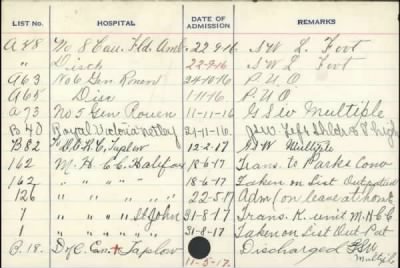 LIST No. HOSPITAL DATE OF ADMISSION REMARKS
A 48 No 8 Can. Fld. Amb. 22-9-16 S W L. Foot
" Disch 22-9-16 S W L Foot
A 63 No 6 Gen Rouen 24-10-16 P.U.O.
A 65 Dis 1-11-16 P.U.O.
A 73 No 5 Gen Rouen 11-11-16 G S W Multiple
B 40 Royal Victoria Netley 24-11-16. GSW Left Shldr & Thigh
B 82 Taplow 12-2-17 G S W Multiple
162 M. H. C. C. Halifax 18-6-17 Trans. to Parks Conv
162 " " " " 18-6-17 Taken on List Outpatient
126 " " " " 22-5-17 Adm (on leave at home)
1 " " " " St John 31-8-17 Trans. K. unit M.H.C.C
1 " " " " " 31-8-17 Taken on List Out-Pat
B. 18. D of C. Can. + Taplow 11-5-17. Discharged GSW Multiple.